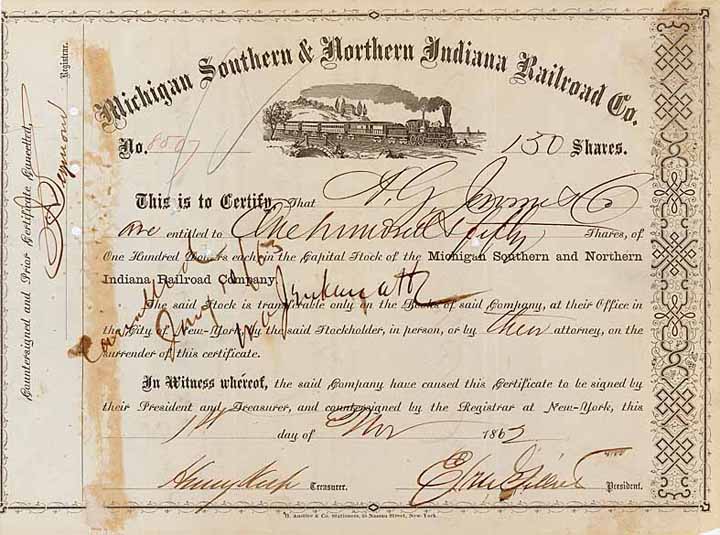 Michigan Southern & Northern Indiana Railroad Co.
No. 8507 150 Shares.
This is to Certify, That A. G.
are entitled to One hundred & fifty Shares, of
One Hundred Dollars each in the Capital Stock of the Michigan Southern and Northern
Indiana Railroad Company.
The said Stock is transferable only on the Books of said Company, at their Office in
the City of New-York, by the said Stockholder, in person, or by their attorney, on the
surrender of this certificate.
In Witness whereof, the said Company have caused this Certificate to be signed by
their President and Treasurer, and countersigned by the Registrar at New-York, this
1st day of Nov 1862
Henry Keep Treasurer. President.
Countersigned and Prior Certificate Cancelled,
Raymond Registrar.
Cancelled